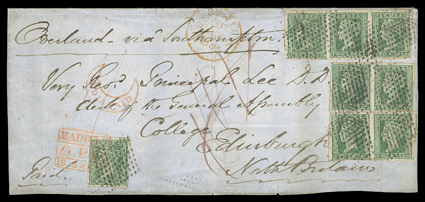 Overland - via Southampton.
Very Revd. Principal Lee D.D
clerk of the General Assembly
College
Edinburgh
North Britain
Paid
MAD
G P